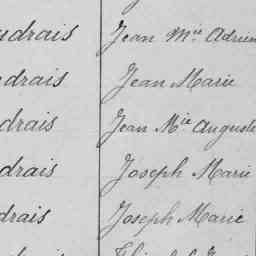 udrais Jean Mie Adrien
drais Jean Marie
drais Jean Mie Auguste
drais Joseph Marie
drais Joseph Marie